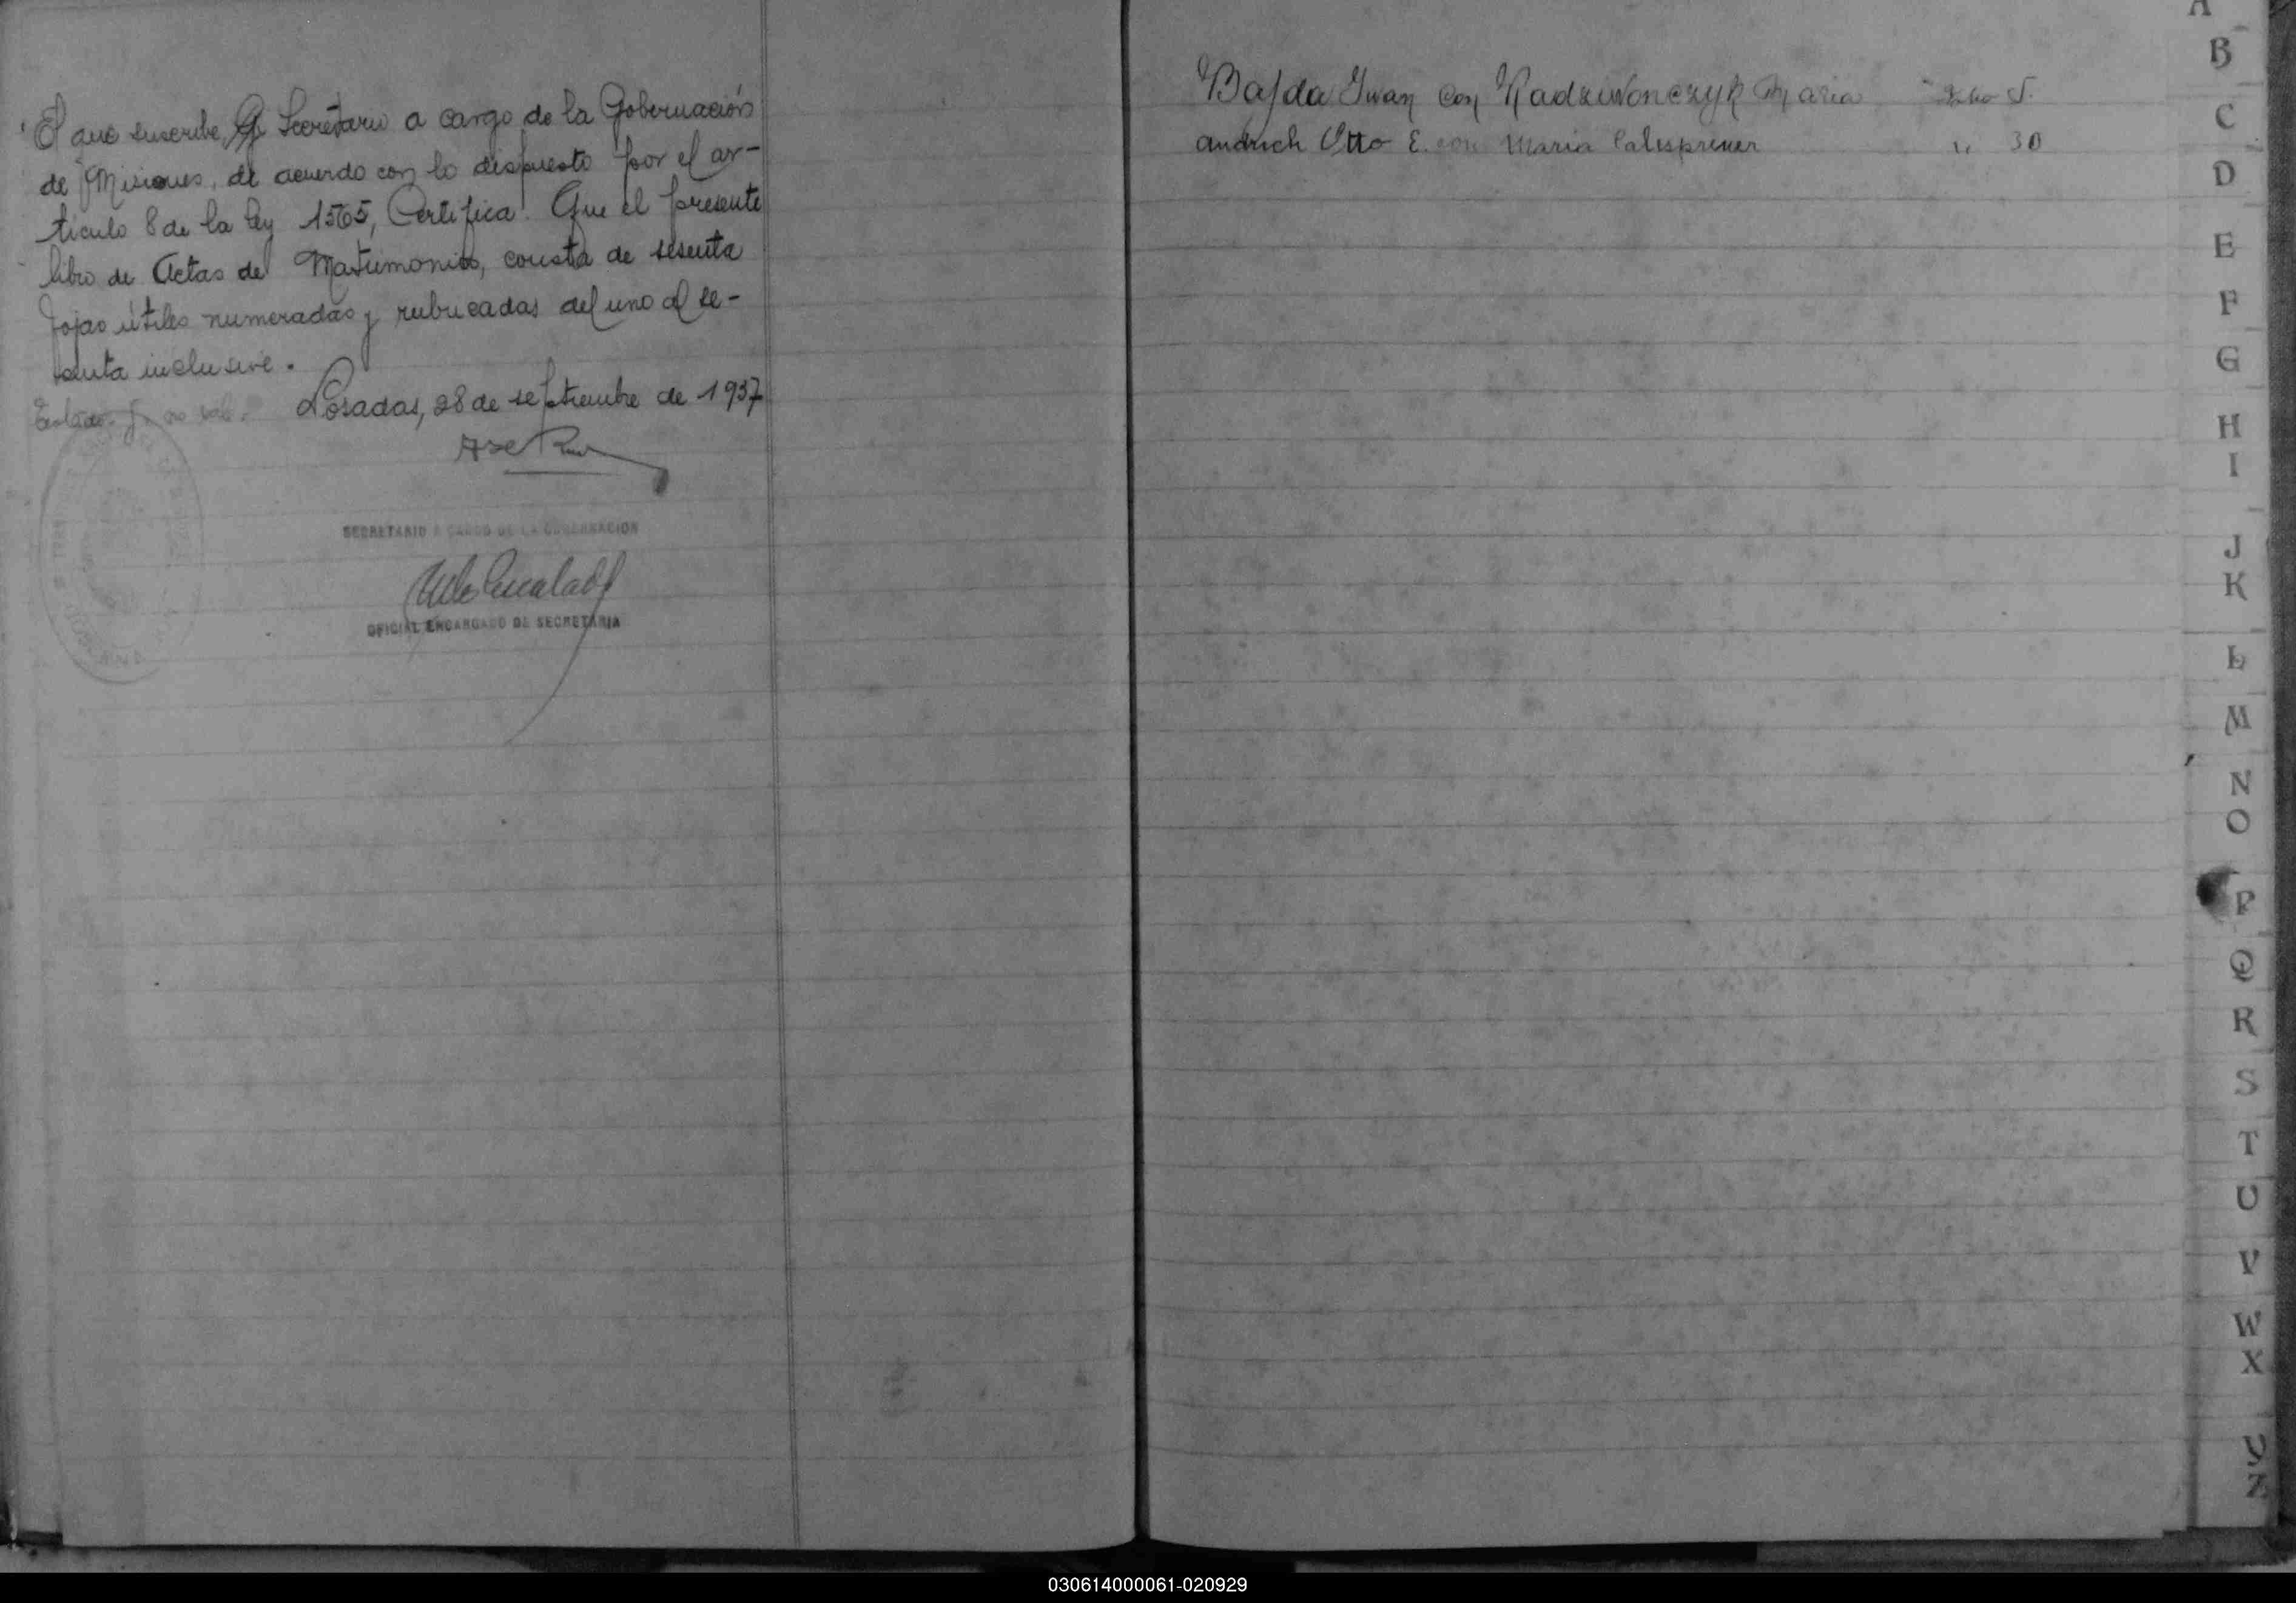 El que suscribe, Secretario a cargo de la Gobernación
de Misiones, de acuerdo con lo dispuesto por el ar-
tículo 8 de la ley 1565, Certifica: Que el presente
libro de Actas de Matrimonios, consta de sesenta
fojas útiles numeradas y rubricadas del uno al se-
senta inclusive.
Posadas, 28 de septiembre de 1937
SECRETARIO A CARGO DE LA GOBERNACION
OFICIAL ENCARGADO DE SECRETARIA
Bajda Iwan con Radziwonczyk Maria
Andrich Otto E. con Maria " 30
A
B
C
D
E
F
G
H
I
J
K
L
M
N
O
P
Q
R
S
T
U
V
W
X
Y
Z
030614000061-020929